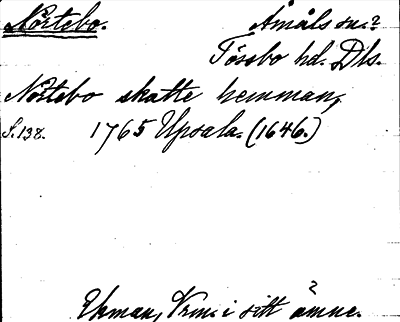 Nörtebo. Åmåls sn.?
Tössbo hd. Dls.
Nörtebo skatte hemman,
S. 138. 1765 Upsala. (1646.)
?
Ekman, Vrml. i sitt ämne.